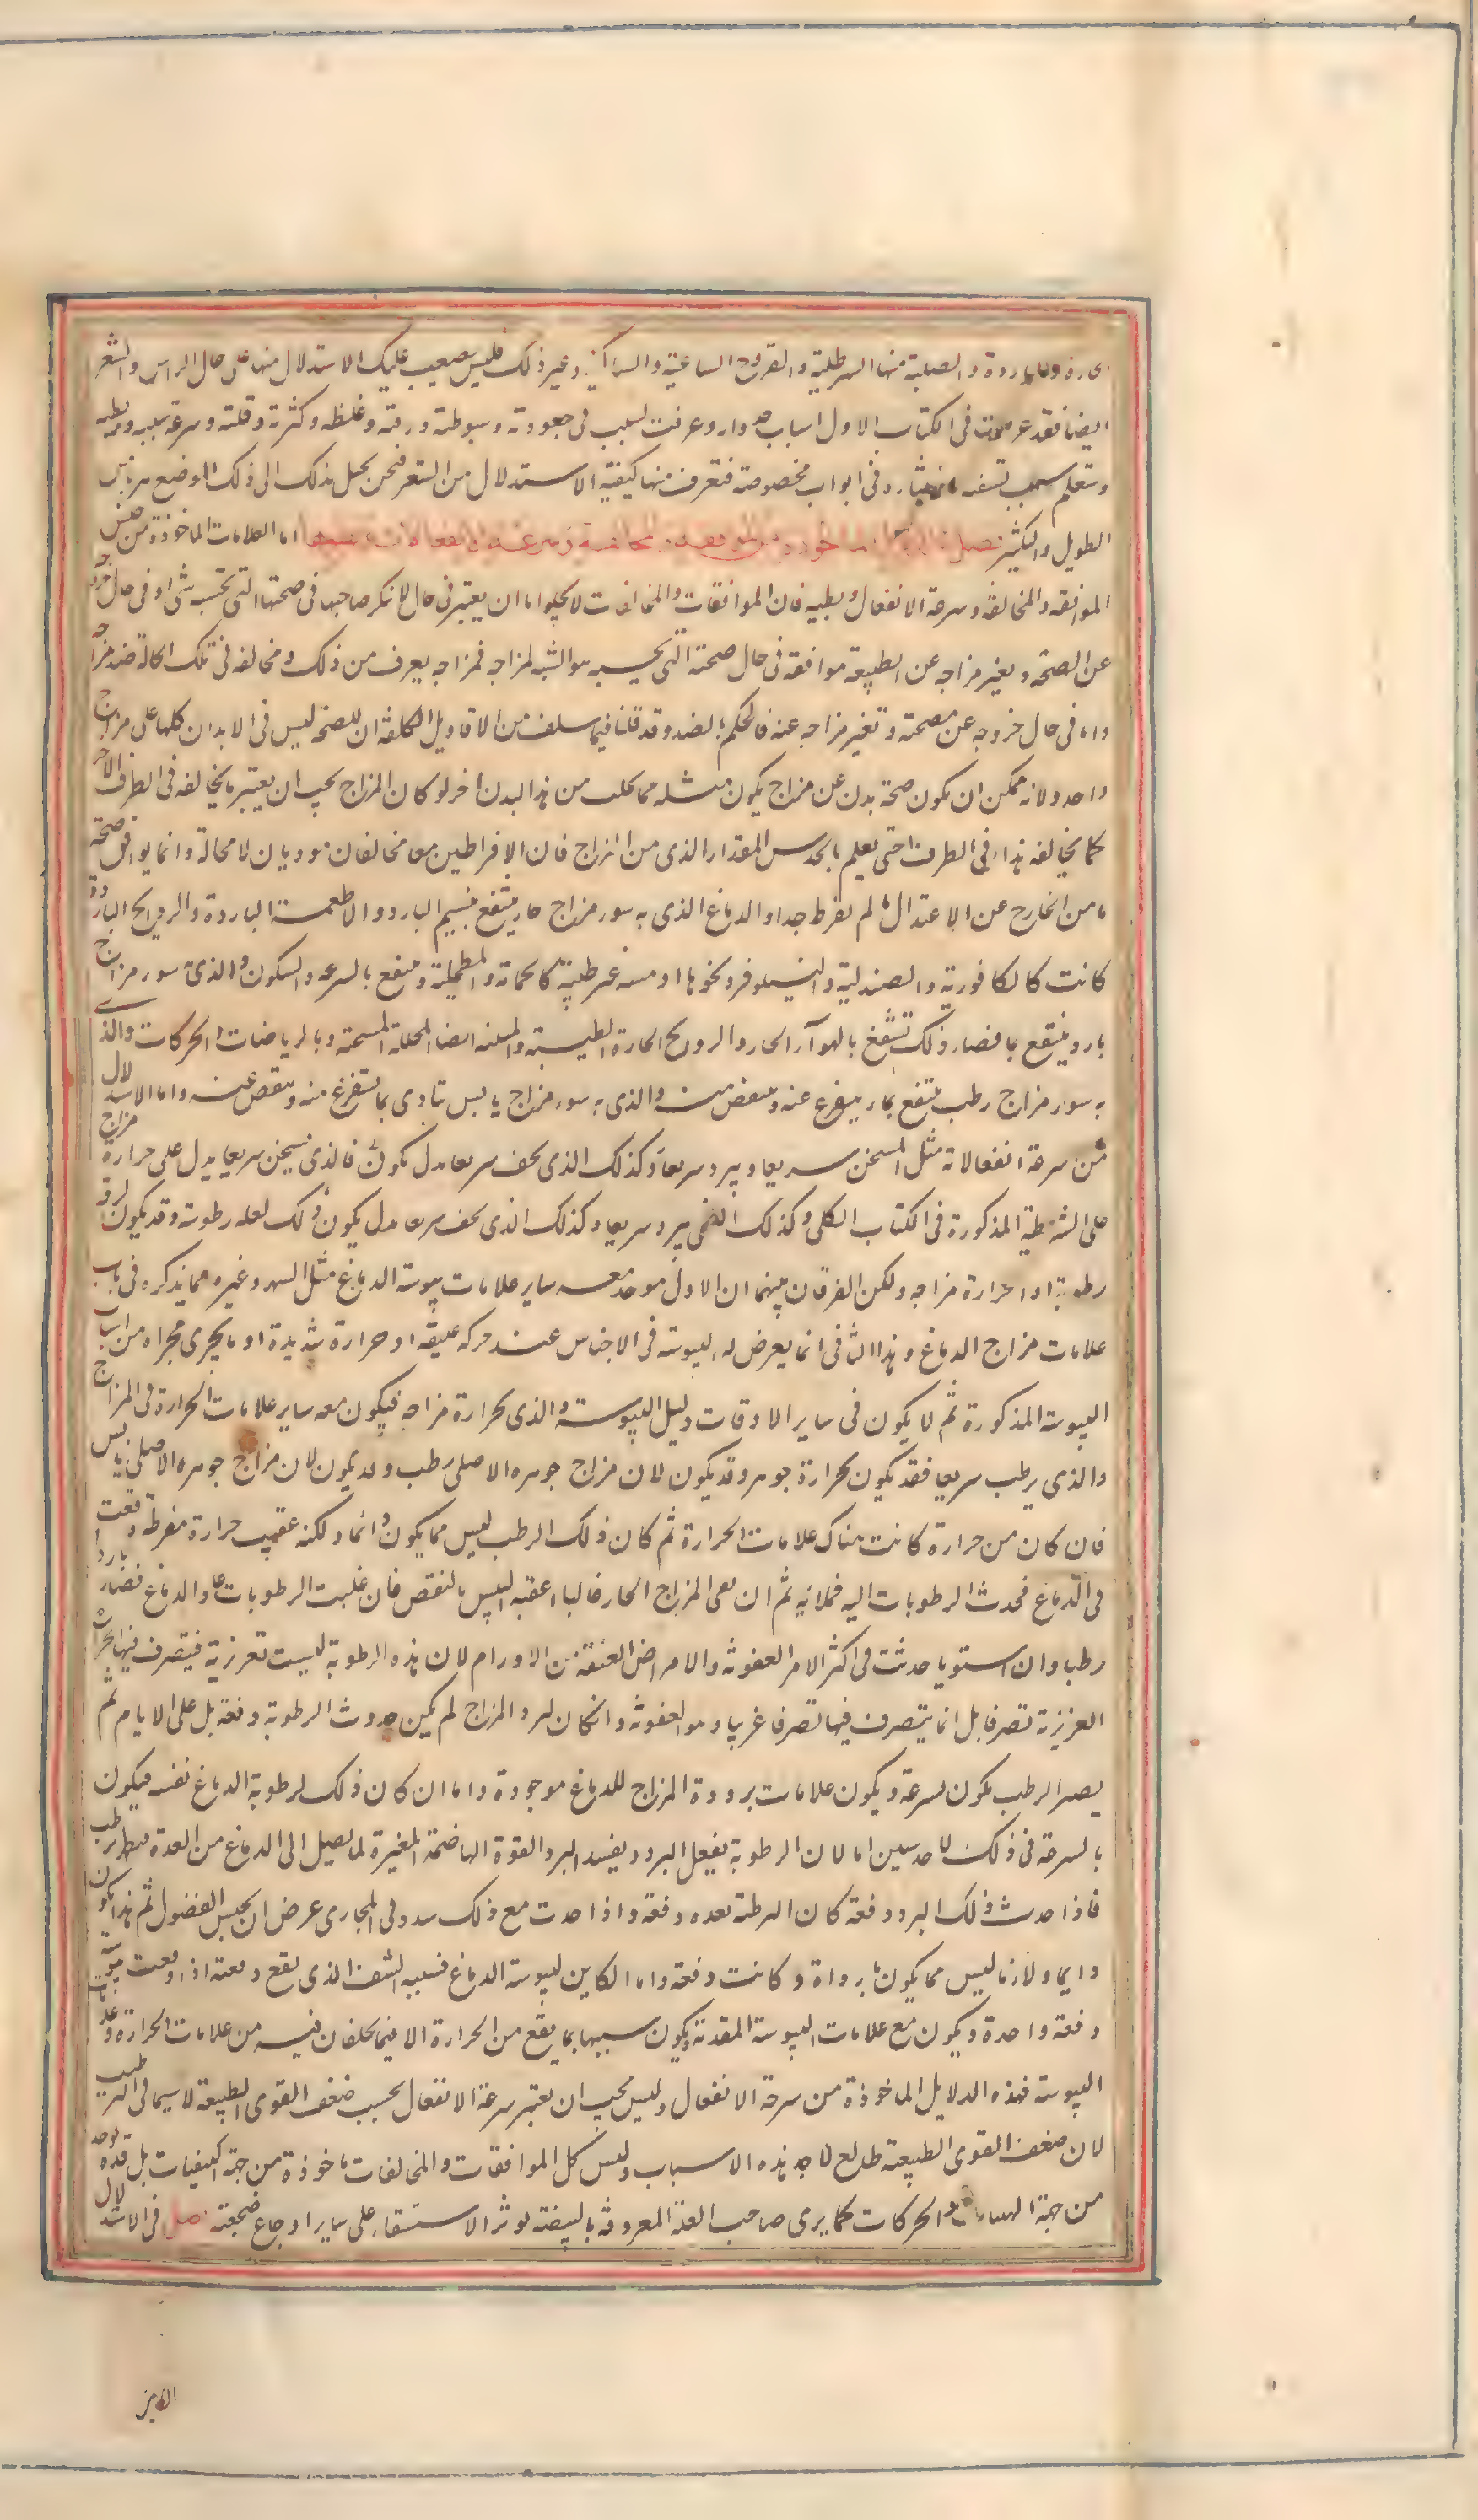 والباردة والصلبة منها السرطانية والقروح الساعية والساكنة وغير ذلك فليس يصعب عليك الاستدلال منها على حال الراس والشعر
ايضا فقد عرفت فى الكتاب الاول اسباب حدوثه وعرفت السبب فى جعودته وسبوطته ورقته وغلظه وكثرته وقلته وسرعة شيبه وبطئه
وستعلم سبب تشققه وانتثاره فى ابواب مخصوصة فتعرف منها كيفية الاستدلال من الشعر فنحن نحيل بذلك الى ذلك الموضع هربا من
الطويل والكثير فصل اما العلامات الماخوذة من جنس
الموافقة والمخالفة وسرعة الانفعال وبطيه فان الموافقات والمخالفات لا يخلوا اما ان يعتبر فى حال لا ينكر صاحبها فى صحتها التى تحسبه شى او فى حال خروجه
عن الصحة وتغير مزاجه عن الطبيعة موافقه فى حال صحته التى يحسبه هو الشبه لمزاجه فمزاجه يعرف من ذلك ومخالفه فى تلك الحالة ضد مزاجه
واما فى حال خروجه عن صحته وتغير مزاجه عنه فالحكم بالضد وقد قلنا فيما سلف من الاقاويل الكلية ان الصحة ليس فى الابدان كلها على مزاج
واحد ولانه ممكن ان يكون صحة بدن عن مزاج يكون مثله مما يجلب من هذا البدن اخر لو كان المزاج يجب ان يعتبر ما يخالفه فى الطرف الاخر
كما يخالفه هذا فى الطرف حتى يعلم بالحدس المقدار الذى من المزاج فان الافراطين معا مخالفان موذيان لا محالة وانما يوافق صحة
ما من الخارج عن الاعتدال ما لم يفرط جدا والدماغ الذى به سوء مزاج حار ينتفع بنسيم البارد والاطعمة الباردة والروايح الباردة
كانت كالكافورية والصندلية والنيلوفر ونحوها او منتنة غير طيبة كالحماته والطحلبية وينتفع بالسرعة والسكون والذى به سوء مزاج
بارد ينتفع بما يضاد ذلك فينتفع بالهوآء الحار والروايح الحارة الطيبة والمنتنة ايضا المحللة المسخنة وبالرياضات والحركات والذى
به سوء مزاج رطب ينتفع بما يستفرغ عنه وينقص منه والذى به سوء مزاج يابس يتاذى بما يستفرغ منه وينقص عنه واما الاستدلال
من سرعة انفعالاته مثل المسخن سريعا ويبرد سريعا وكذلك الذى يجف سريعا مدل يكون فالذى يسخن سريعا يدل على حرارة مزاج
على الشريطة المذكورة فى الكتاب الكلى وكذلك الذى يبرد سريعا وكذلك الذى يجف سريعا مدل يكون ذلك لعلة رطوبته وقد يكون لقلة
رطوبة او احرارة مزاجه ولكن الفرقان بينهما ان الاول يوجد معه ساير علامات يبوسة الدماغ مثل السهر وغيره مما يذكره فى باب
علامات مزاج الدماغ وهذا الثانى انما يعرض له اليبوسة فى الاحناس عند حركه عنيفة او حرارة شديدة او ما يجرى مجراه من اسباب
اليبوسة المذكورة ثم لا يكون فى ساير الاوقات دليل اليبوسة والذى لحرارة مزاجه فيكون معه ساير علامات الحرارة فى المزاج
والذى يرطب سريعا فقد يكون لحرارة جوهره وقد يكون لان مزاج جوهره الاصلى رطب وقد يكون لان مزاج جوهره الاصلى يابس
فان كان من حرارة كانت هناك علامات الحرارة ثم كان ذلك الرطب ليس مما يكون دائما ولكنه عقيب حرارة مفرطة وقعت
فى الدماغ فجذبت الرطوبات اليه فملاته ثم ان بقى المزاج الحار غالبا اعقبه اليبس بالنقص فان غلبت الرطوبات عاد الدماغ فصار باردا
رطبا وان استويا حدثت فى اكثر الامر العفونة والامراض العفنة من الاورام لان هذه الرطوبة ليست بغريزية فيتصرف فيها الحرارة
الغريزية تصرفا بل انما يتصرف فيها تصرفا غريبا وهو العفونة وان كان لبرد المزاج لم يكن حدوث الرطوبة دفعة بل على الايام ثم
يصير الرطب يكون بسرعة ويكون علامات برودة المزاج للدماغ موجودة واما ان كان ذلك لرطوبة الدماغ نفسه فيكون
بالسرعة فى ذلك لاحد سببين اما لان الرطوبة يفعل البرد ويفسد البرد القوة الهاضمة المغيرة لما يصل الى الدماغ من الغذاء فيرطب
فاذا حدث ذلك البرد دفعة كان الرطبة بعده دفعة واذا حدث مع ذلك سدد فى المجارى عرض ان يحبس الفضول ثم هذا يكون
دايما ولازما ليس مما يكون نادرا وكانت دفعة واما الكاين ليبوسة الدماغ فسببه النشف الذى يقع دفعة اذا وقعت يبوسة
دفعة واحدة ويكون مع علامات اليبوسة المقدمة ويكون سببها بما يقع من الحرارة الا فيما يختلفان فيه من علامات الحرارة وعلامات
اليبوسة فهذه الدلايل الماخوذة من سرعة الانفعال وليس يجب ان يعتبر سرعة الانفعال بحسب ضعف القوى الطبيعة لا سيما فى الترطيب
لان ضعف القوى الطبيعة طالع لاحد هذه الاسباب وليس كل الموافقات والمخالفات ماخوذة من جهة الكيفيات بل قد يوجد
من جهة الهيات والحركات كما يرى صاحب العلة المعروفة بالبيضة يوثر الاستلقاء على ساير اوجاع ضجعته فصل فى الاستدلال